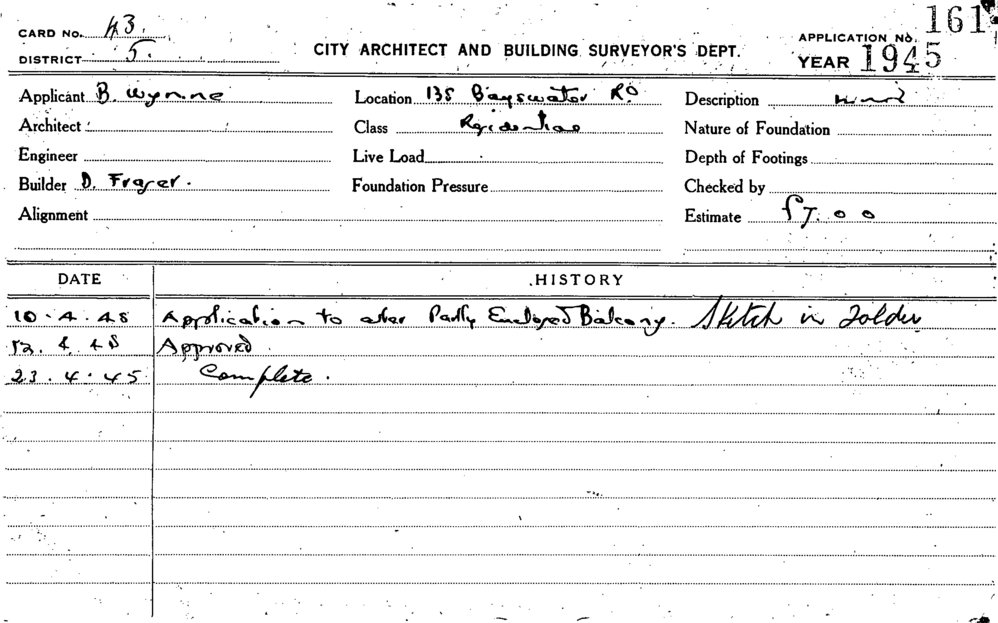 CARD No. 43.
DISTRICT 5.
CITY ARCHITECT AND BUILDING SURVEYOR'S DEPT.
APPLICATION No. 161
YEAR 1945
Applicant B. Wynne
Location 135 Bayswater Rd
Description
Architect
Class Residential
Nature of Foundation
Engineer
Live Load
Depth of Footings
Builder D. Fraser.
Foundation Pressure
Checked by
Alignment
Estimate £7.00
DATE HISTORY
10.4.45 Application to alter Partly Enclosed Balcony. Sketch in Folder
12.4.45 Approved.
23.4.45 Complete.